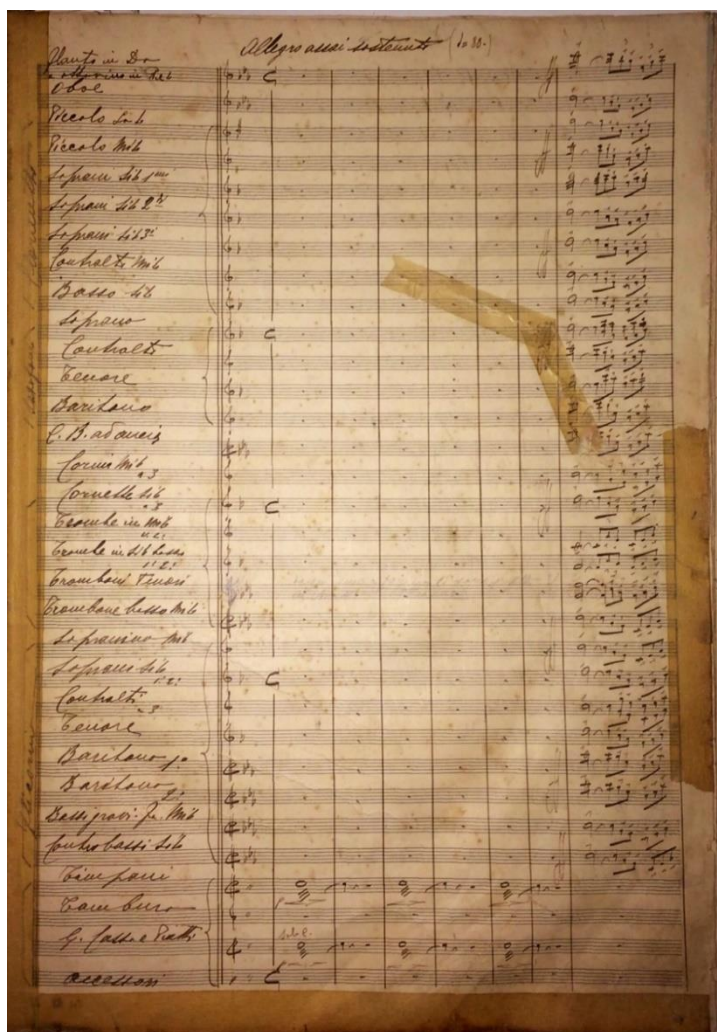 Allegro assai sostenuto
Flauto in Do
ottavino in Reb
Oboe
Piccolo Lab
Piccolo Mib
Soprani Sib 1mi
Soprani Sib 2di
Soprani Sib 3i
Contralti Mib
Basso Sib
Soprano
Contralti
Tenore
Baritono
C. B. ad ancia
Corni Mib
Cornette Sib
Trombe in Mib
Trombe in Sib basso
Tromboni Tenori
Trombone basso Mib
Sopranino Mib
Soprano Sib
Contralti
Tenore
Baritono 1o
Baritono 2o
Bassi gravi Fa. Mib
Contrabassi Sib
Timpani
Tamburo
G. Cassa e Piatti
soli
accessori